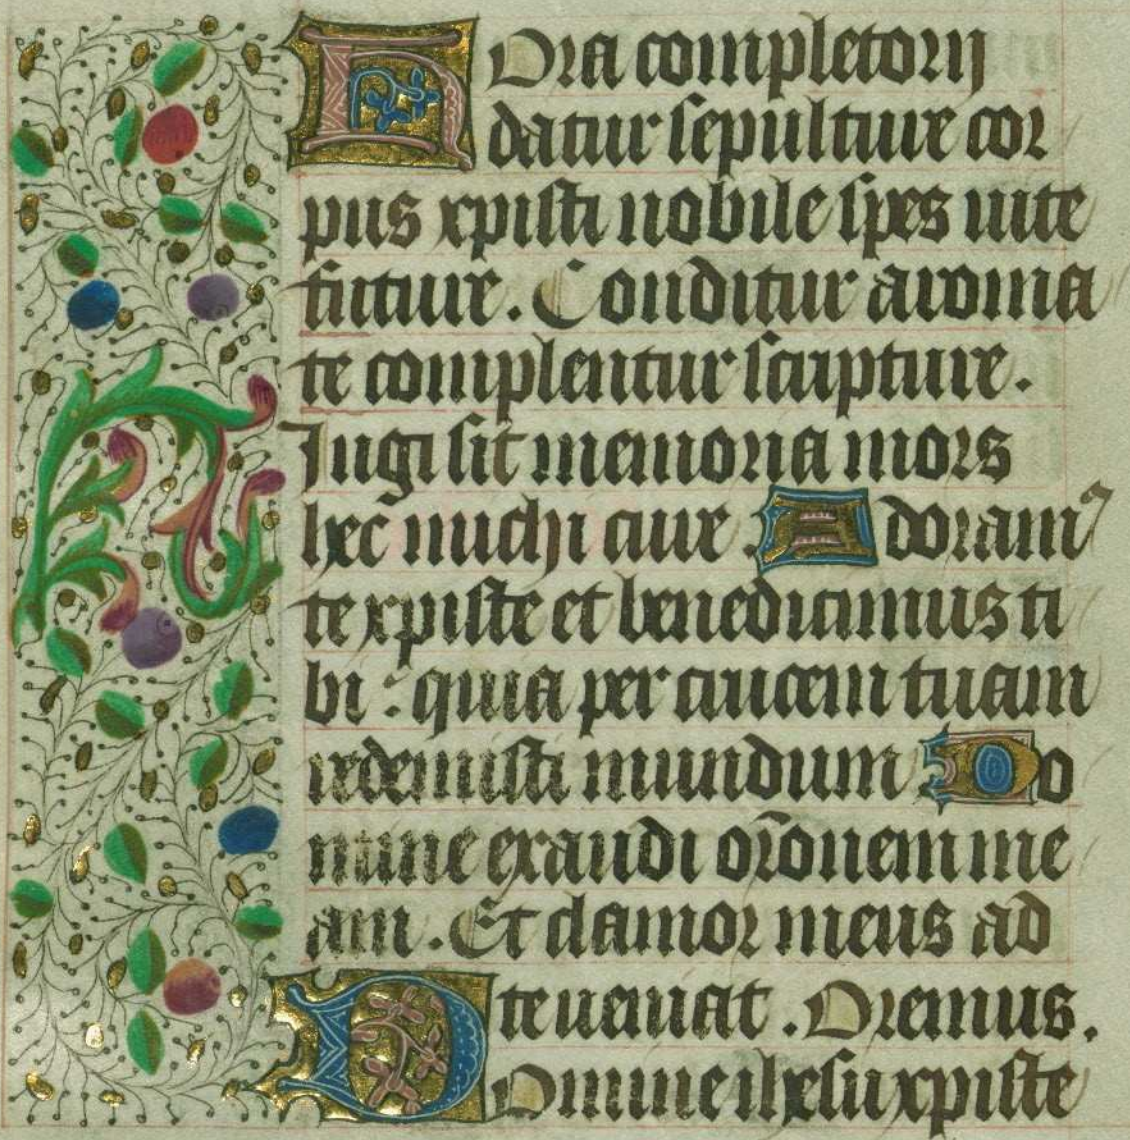 Hora completorij
datur sepulture cor
pus xpisti nobile spes uite
future. Conditur aroma
te complentur scripture.
Iugi sit memoria mors
hec michi cure. Adoram⁹
te xpiste et benedicimus ti
bi : quia per crucem tuam
redemisti mundum Do
mine exaudi or̃onem me
am. Et clamor meus ad
te ueniat. Oremus.
Domine ihesu xpiste